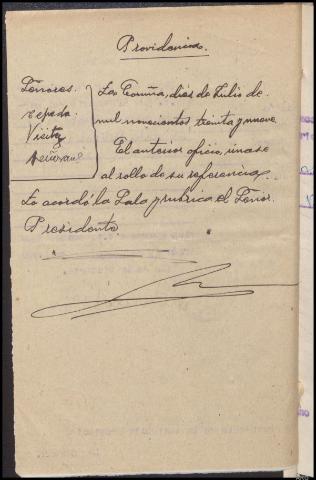 Providencia.
Señores.
Cepeda
Visitz
La Coruña, dies de Julio de
mil novecientos treinta y nueve
El anterior oficio, unase
al rollo de su referencia.
Lo acordó la Sala y rubrica el Señor
Presidente.